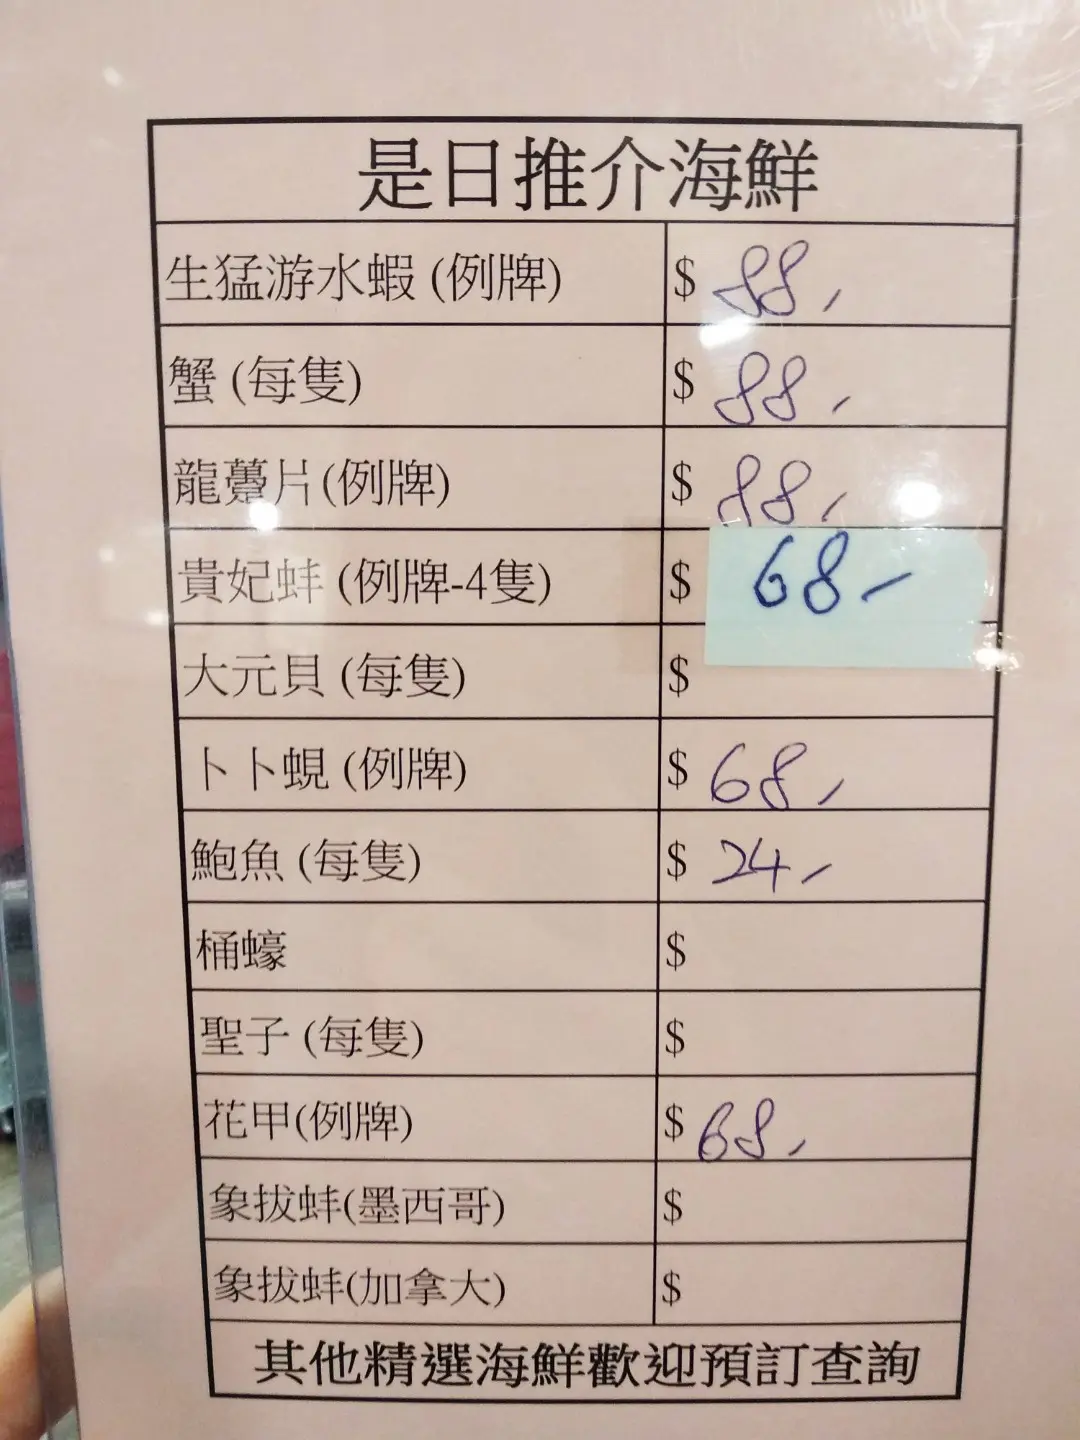 是日推介海鮮
生猛游水蝦 (例牌) $ 88,
蟹 (每隻) $ 88,
龍躉片(例牌) $ 88,
貴妃蚌 (例牌-4隻) $ 68-
大元貝 (每隻) $
卜卜蜆 (例牌) $ 68,
鮑魚 (每隻) $ 24,
桶蠔 $
聖子 (每隻) $
花甲(例牌) $ 68,
象拔蚌(墨西哥) $
象拔蚌(加拿大) $
其他精選海鮮歡迎預訂查詢